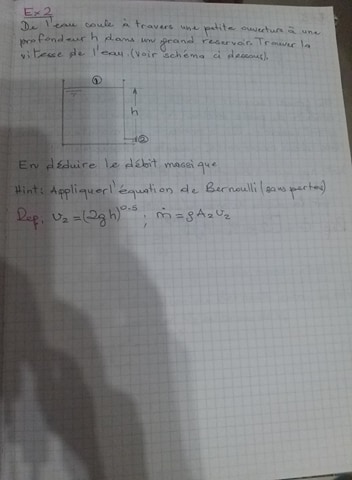 Ex2
De l'eau coule à travers une petite ouverture à une
profondeur h dans un grand reservoir. Trouver la
vitesse de l'eau. (voir schéma ci dessous).
①
h
②
En déduire le débit massique
Hint: Appliquer l'équation de Bernoulli (sans pertes)
Rep. v₂ = (2gh)^0.5 ; ṁ = ρA₂v₂